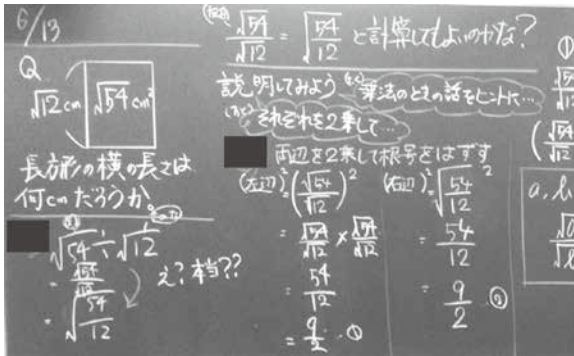 6/13
Q
√12 cm √54 cm²
長方形の横の長さは
何cmだろうか。
√54 ÷ √12
= √54/√12
= √(54/12)
え?本当??
√54/√12 = √(54/12) と計算してもよいのかな?
説明してみよう
乗法のときの話をヒントに…
それぞれを2乗して…
両辺を2乗して根号をはずす
(左辺)² = (√54/√12)²
= √54/√12 × √54/√12
= 54/12
= 9/2 …①
(右辺)² = √(54/12)²
= 54/12
= 9/2 …②
①
a, b